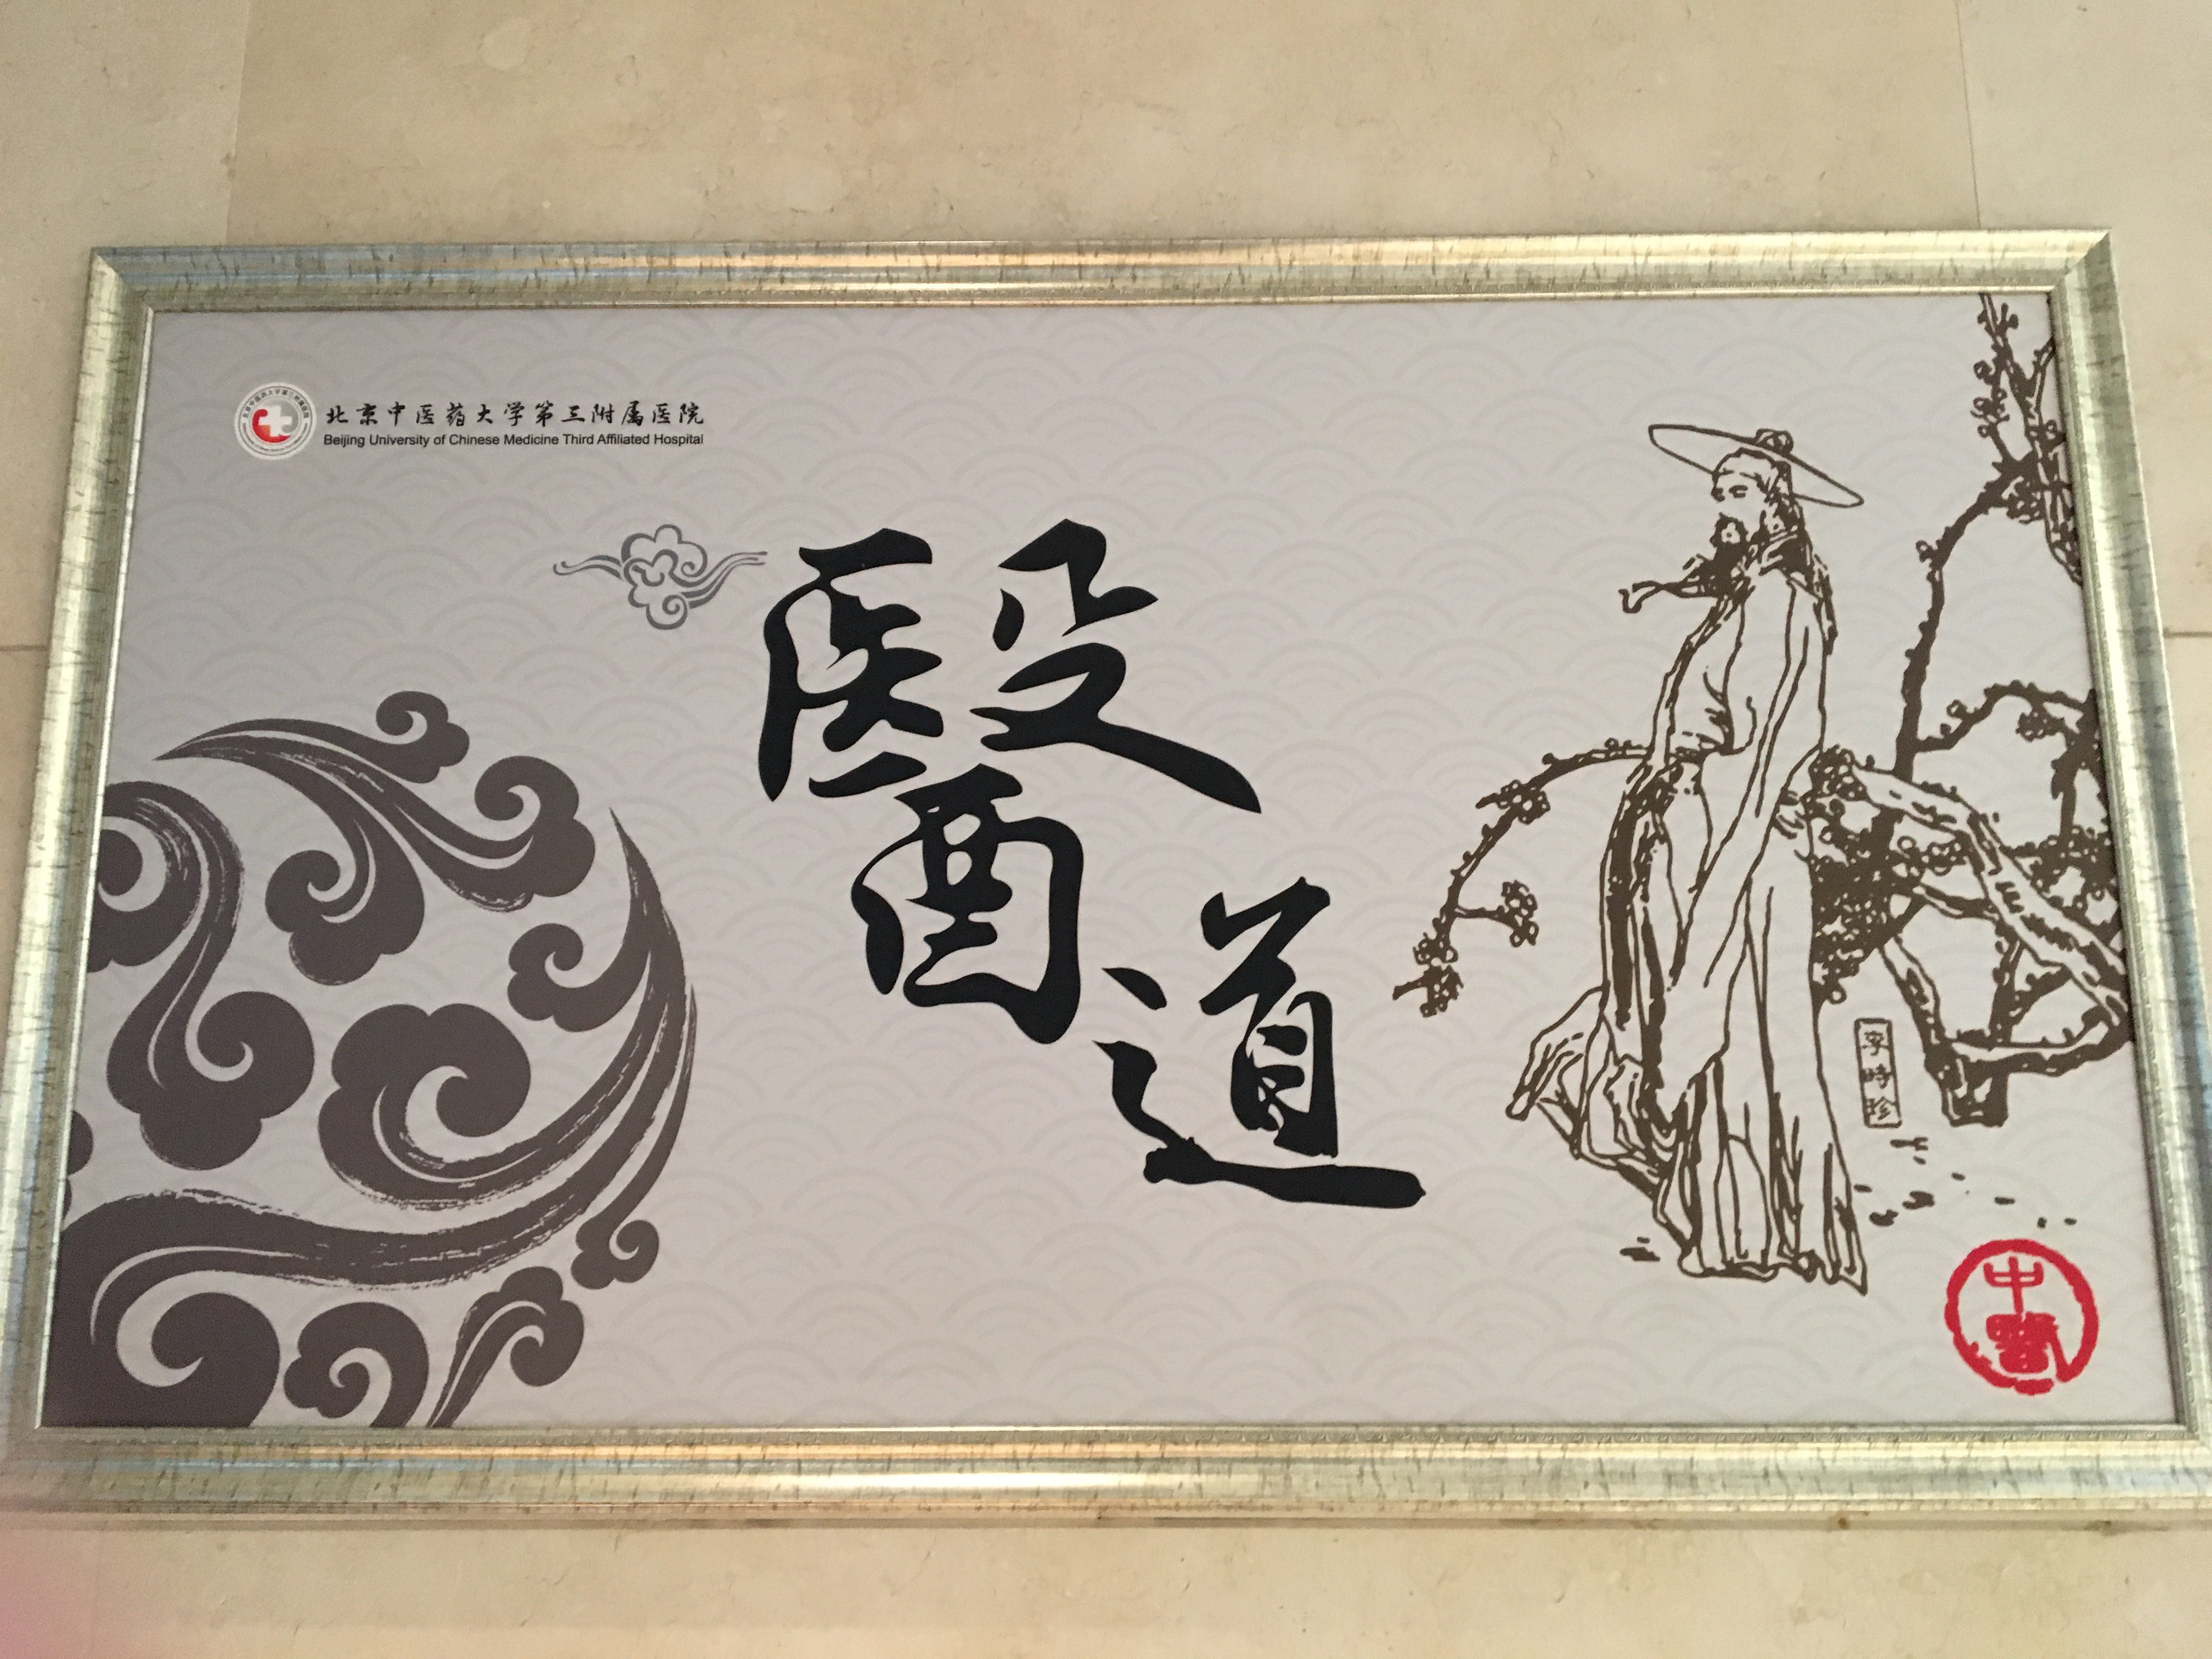 北京中医药大学第三附属医院
Beijing University of Chinese Medicine Third Affiliated Hospital
醫道
李時珍
中醫